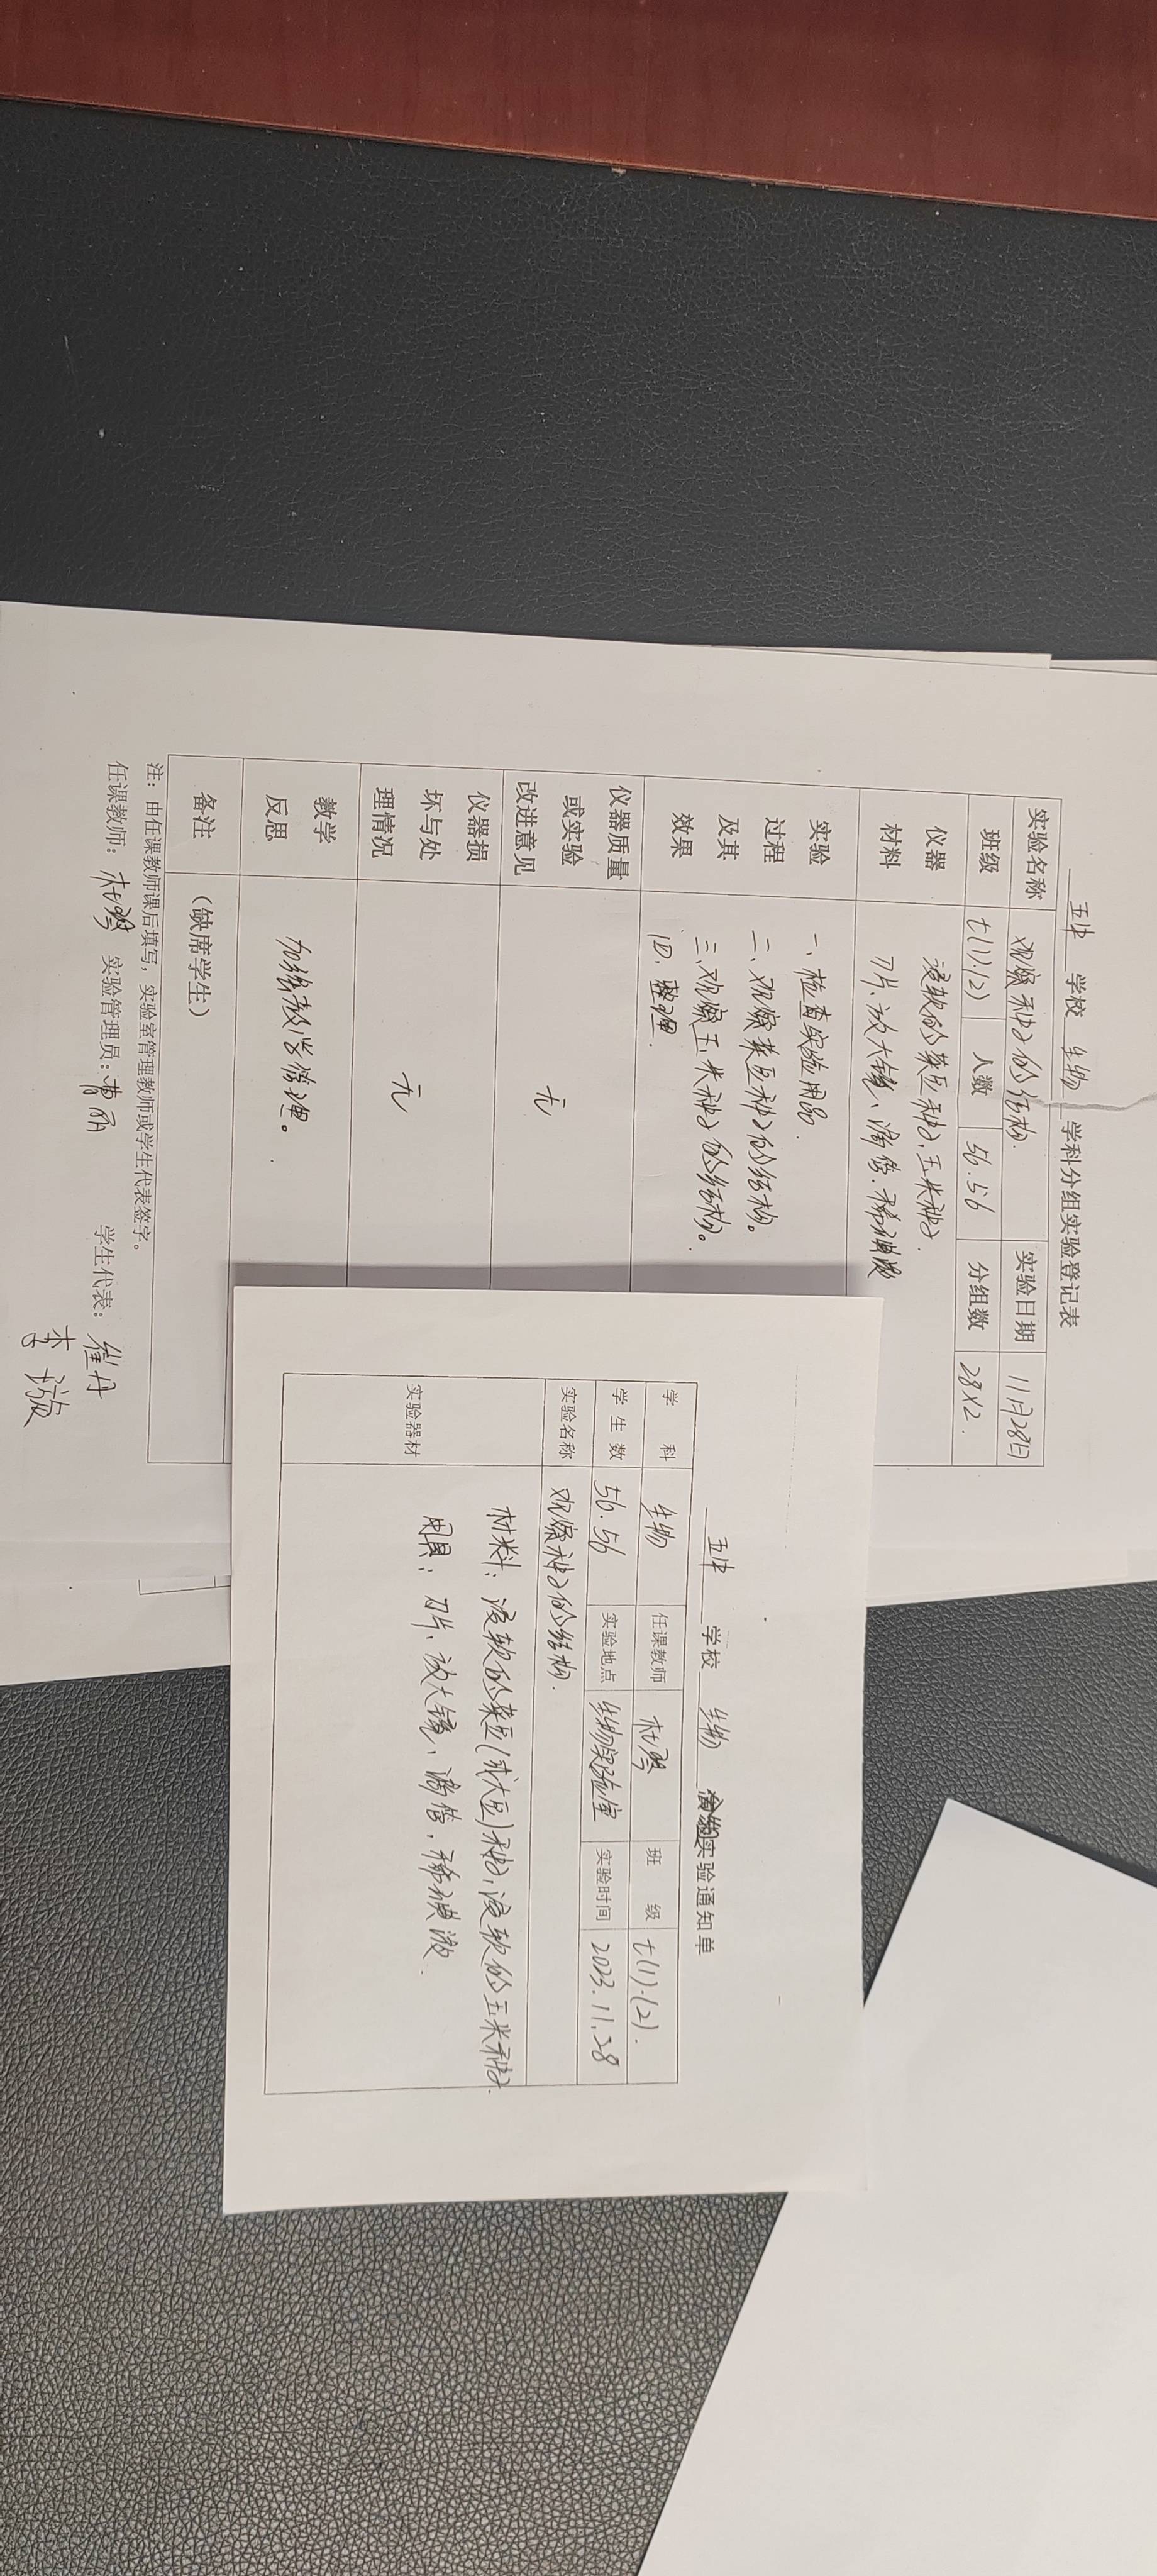 五中 学校 生物 学科分组实验登记表
实验名称 观察种子的结构. 实验日期 11月28日
班级 七(1).(2) 人数 56.56 分组数 28×2.
仪器材料 浸软的菜豆种子、玉米种子.
刀片、放大镜、滴管、稀碘液
实验过程及其效果 一、检查实验用品.
二、观察菜豆种子的结构。
三、观察玉米种子的结构。
四、整理.
仪器质量或实验改进意见 无
仪器损坏与处理情况 无
教学反思 加强教学管理。
备注 (缺席学生)
注:由任课教师课后填写,实验室管理教师或学生代表签字。
任课教师: 杜 实验管理员: 曹丽 学生代表: 崔丹
李
五中 学校 生物 实验通知单
学科 生物 任课教师 杜 班级 七(1).(2).
学生数 56.56 实验地点 生物实验室 实验时间 2023.11.28
实验名称 观察种子的结构.
实验器材 材料:浸软的菜豆(或大豆)种子,浸软的玉米种子.
用具:刀片、放大镜、滴管、稀碘液.